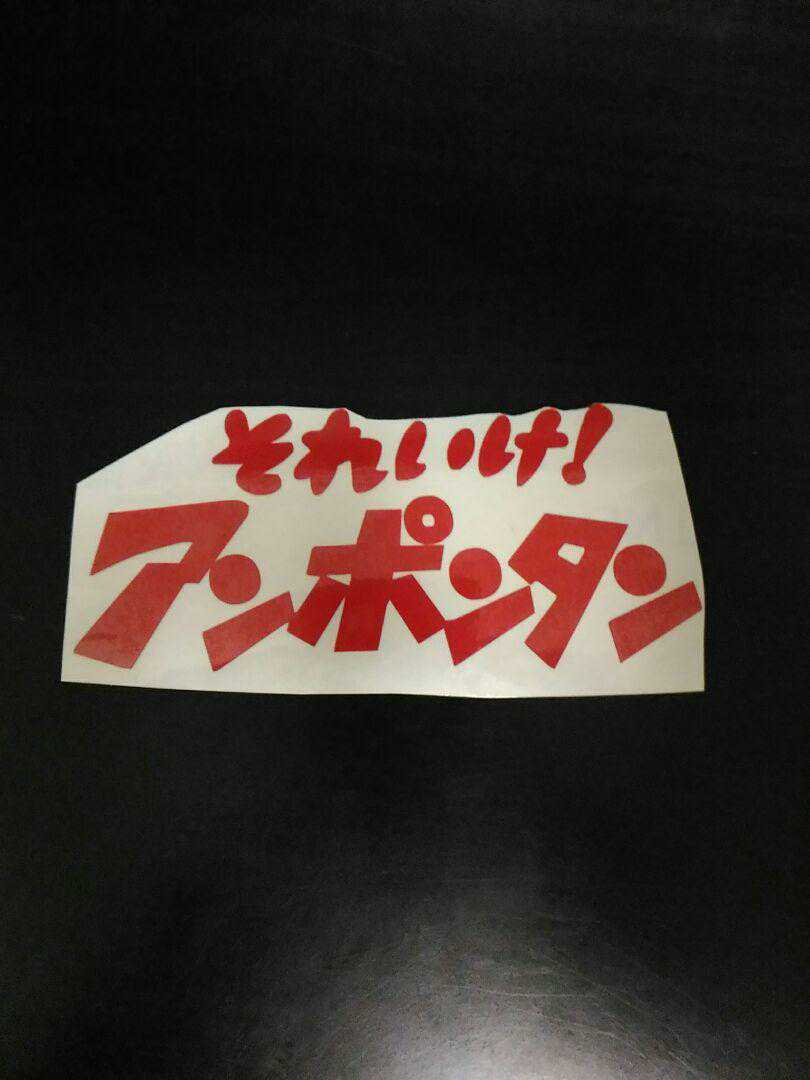 それいけ!
アンポンタン